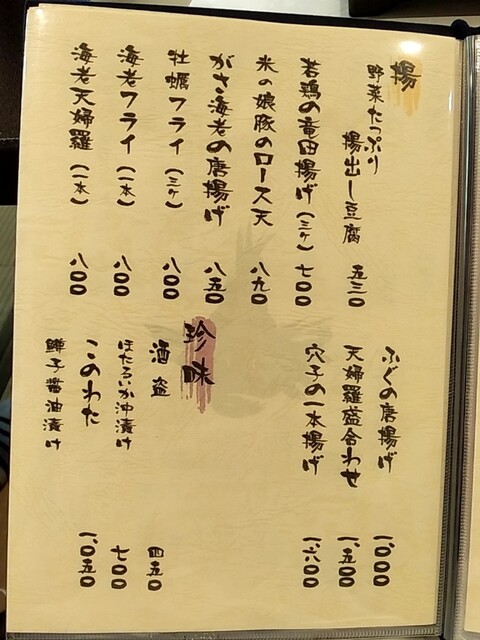 揚
野菜たっぷり
揚出し豆腐 五三〇
若鶏の竜田揚げ(三ヶ) 七〇〇
米の娘豚のロース天 八九〇
がさ海老の唐揚げ 八五〇
牡蠣フライ(三ヶ) 八〇〇
海老フライ(一本) 八〇〇
海老天婦羅(一本) 八〇〇
ふぐの唐揚げ 一、〇〇〇
天婦羅盛合わせ 一、五〇〇
穴子の一本揚げ 一、六〇〇
珍味
酒盗 四五〇
ほたるいか沖漬け 七〇〇
このわた 一、〇五〇
鱓子醤油漬け